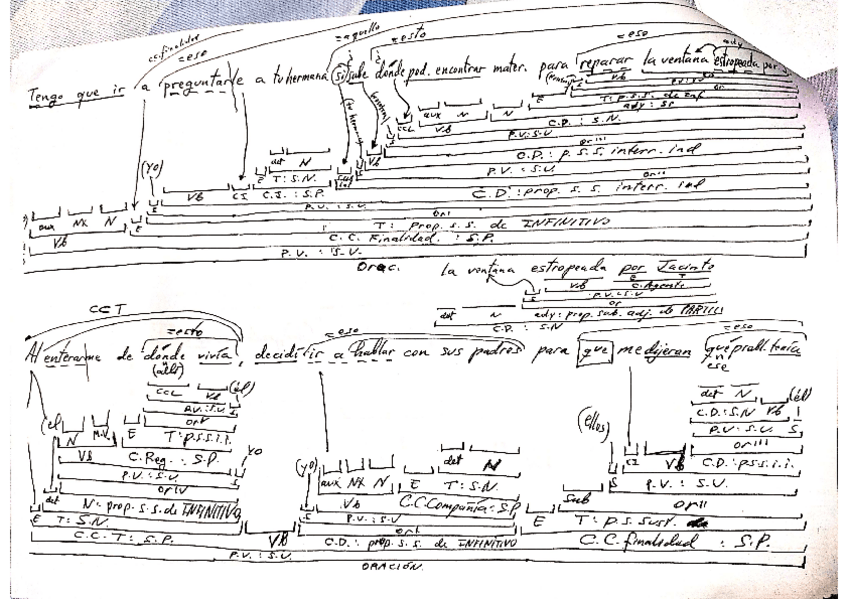 cc.finalidad
=eso =aquello =esto =eso
Tengo que ir a preguntarle a tu hermana si sabe dónde pod. encontrar mater. para reparar la ventana estropeada por
ady
aux N N E Vb
T: p.s.s. de inf
ady: SP
C.D.: S.N.
P.V.: S.V
or III
C.D.: p.s.s. interr. ind
P.V.: S.V.
or II
C.D.: prop. s.s. interr. ind
(yo) det N
E T: S.N.
Vb CI C.I.: S.P.
P.V.: S.V.
or I
aux NX N E T: prop. s.s. de INFINITIVO
Vb C.C. Finalidad. : S.P.
P.V.: S.V.
Orac.
la ventana estropeada por Jacinto
Vb C.Agente
P.V.: S.V
or
det N ady: prop. sub. adj. de PARTICI
C.D.: S.N
CCT
=esto =eso =eso
Al enterarme de dónde vivía, decidí ir a hablar con sus padres para que me dijeran qué probl. tenía
(allí) ese
CCL Vb (él)
P.V.: S.V.
(el N M.V. E T: p.s.s.i.i.
Vb C.Reg.: S.P. yo
P.V.: S.V.
or IV
det N: prop. s.s. de INFINITIVO
E T: S.N.
C.C.T.: S.P. Vb
(yo) aux NX N E det N
T: S.N.
Vb C.C.Compañía: S.P
P.V.: S.V
or I
C.D.: prop. s.s. de INFINITIVO
(ellos) det N (él)
C.D.: S.N Vb S
P.V.: S.V.
or III
CI Vb C.D.: p.s.s.i.i.
S P.V.: S.V.
Sub or II
E T: p.s. sust.
C.C. finalidad : S.P.
P.V.: S.V.
ORACIÓN